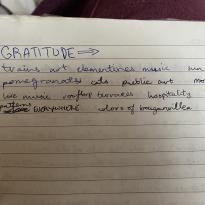 GRATITUDE →
trains art clementines music sun
pomegranates cats public art mo
live music rooftop terraces hospitality
patterns EVERYWHERE colors of bougainvillea